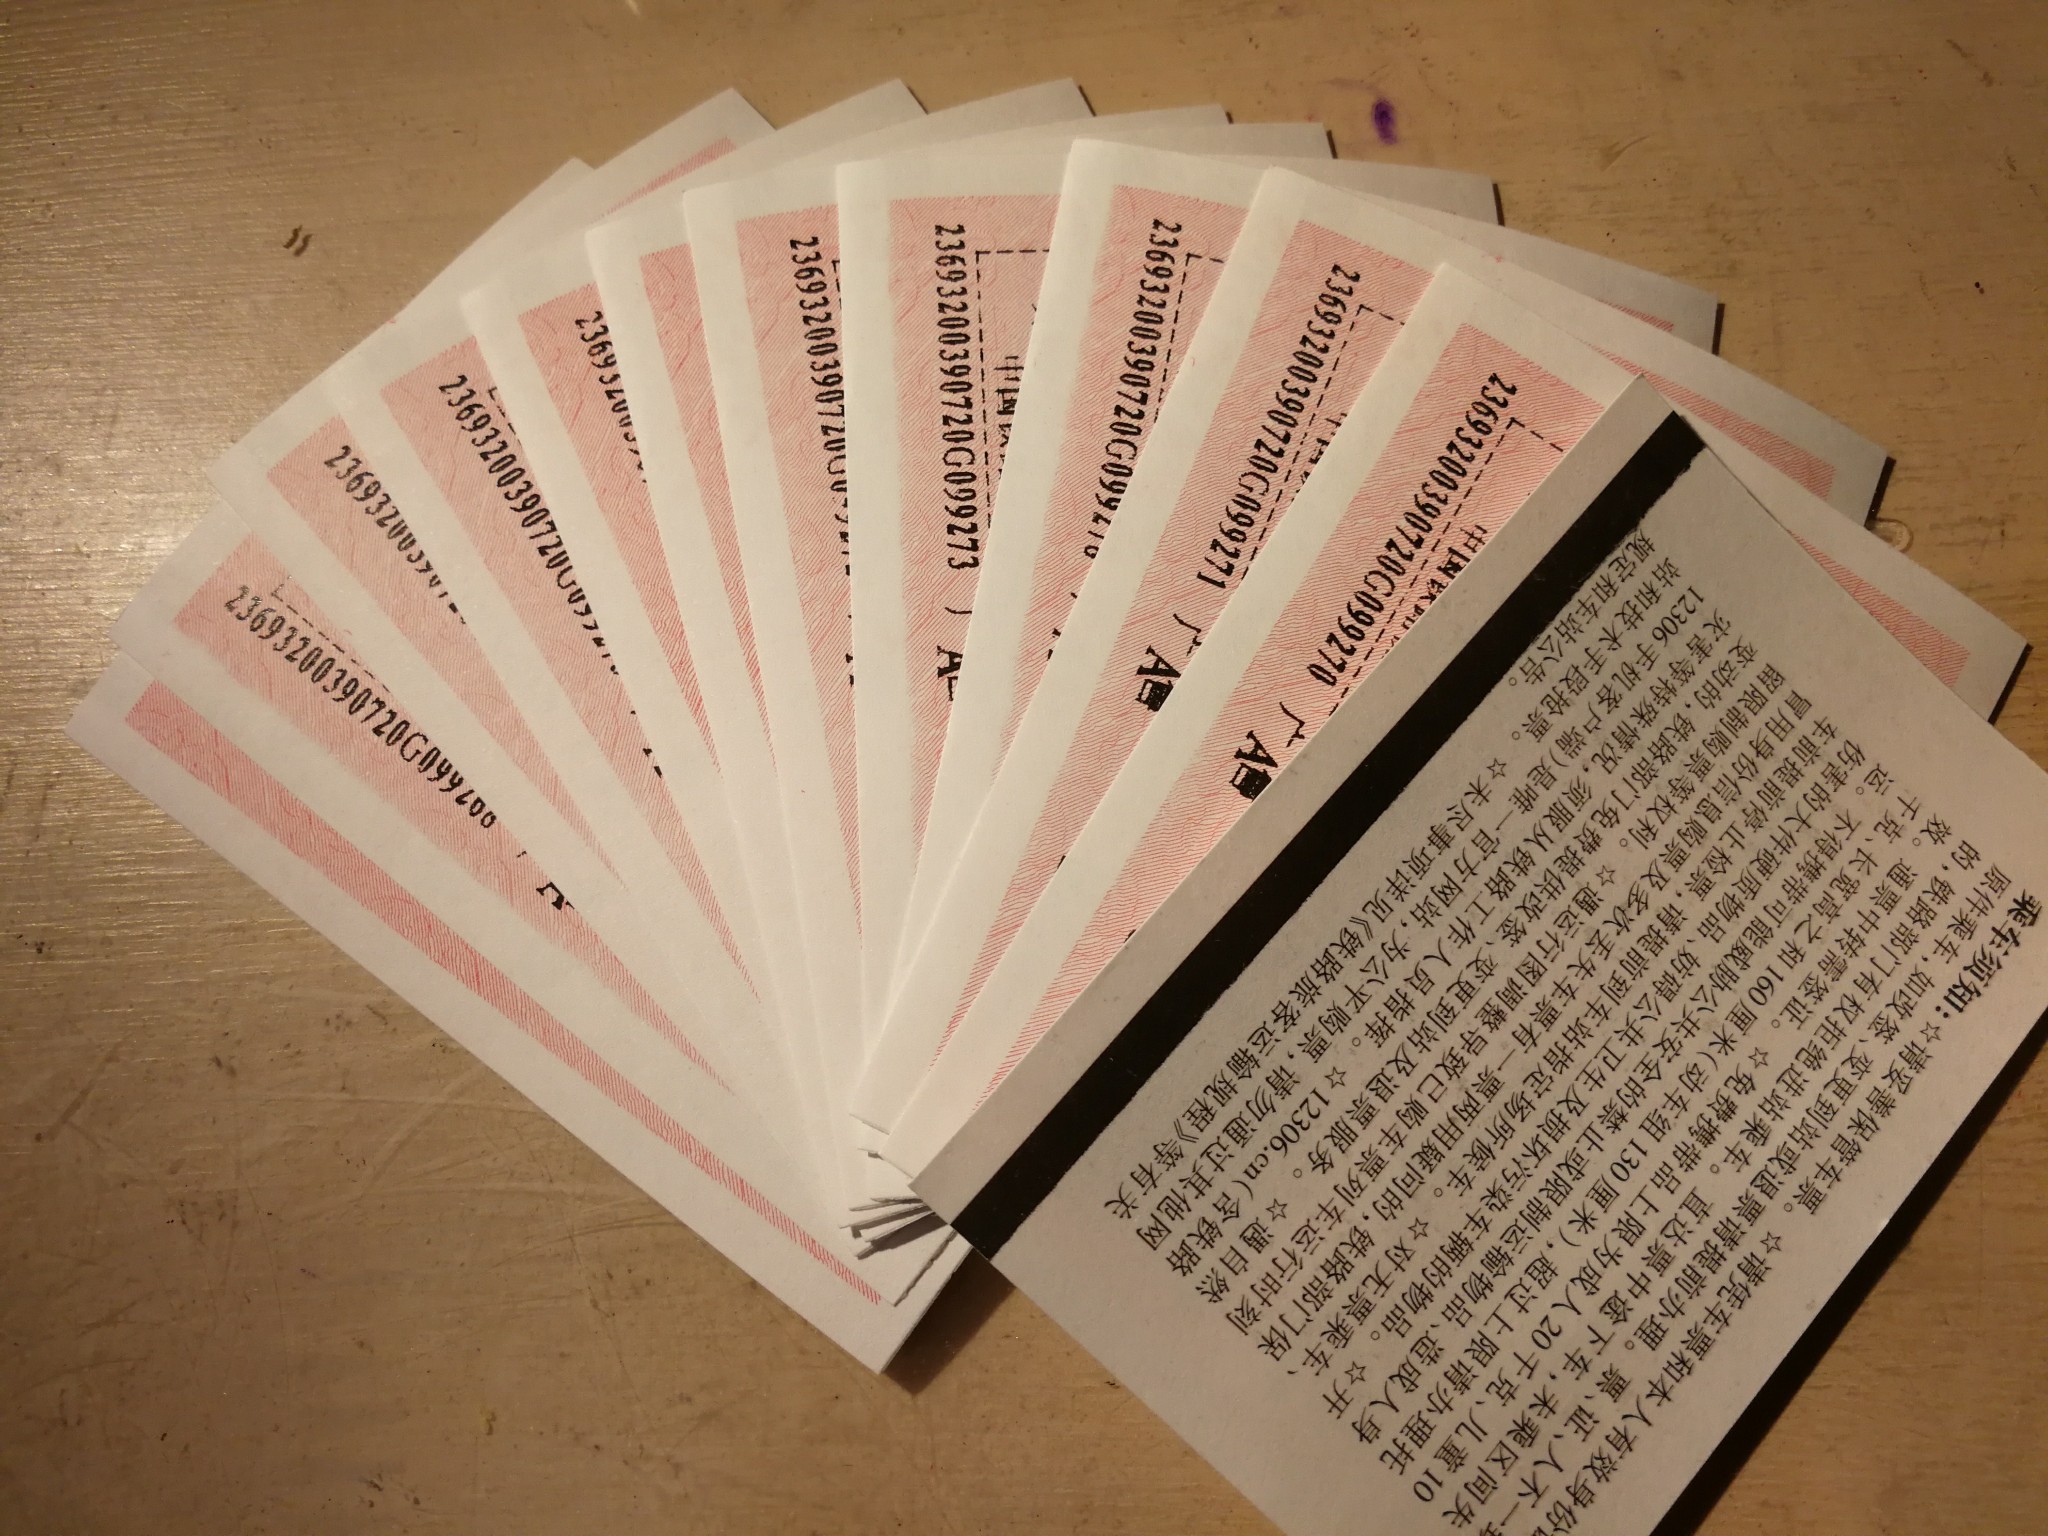 23693200390720G099
2369320039072
23693200390720G09927
236932003
23693200390720G0927
23693200390720G099273
中国铁
23693200390720G09927
23693200390720G099271
中国铁
23693200390720G099270
中国铁
乘车须知:☆请妥善保管车票。☆请凭车票和本人有效身份
原件乘车,如改签、变更到站或退票请提前办理。票、证、人不一致
的,铁路部门有权拒绝进站乘车。直达票中途下车,未乘区间失
效。通票中转需签证。☆免费携带品上限为成人20千克、儿童10
千克,长宽高之和160厘米(动车组130厘米),超过上限请办理托
运。不得携带可能威胁公共安全的禁止或限制运输物品、造成人身
伤害的大件硬质物品、妨碍公共卫生及损坏污染车辆的物品。☆开
车前提前停止检票,请提前到车站指定场所候车。☆对无票乘车、
冒用身份信息购票及多次丢失车票有一票两用疑问的,铁路部门保
留限制购票等权利。☆遇运行图调整导致已购车票列车运行时刻
变动的,铁路部门免费提供改签、变更到站及退票服务。☆遇自然
灾害等特殊情况,须服从铁路工作人员指挥。☆12306.cn(含铁路
12306手机客户端)是唯一官方网站,为公平购票,请勿通过其他网
站和技术手段抢票。☆未尽事项详见《铁路旅客运输规程》等有关
规定和车站公告。